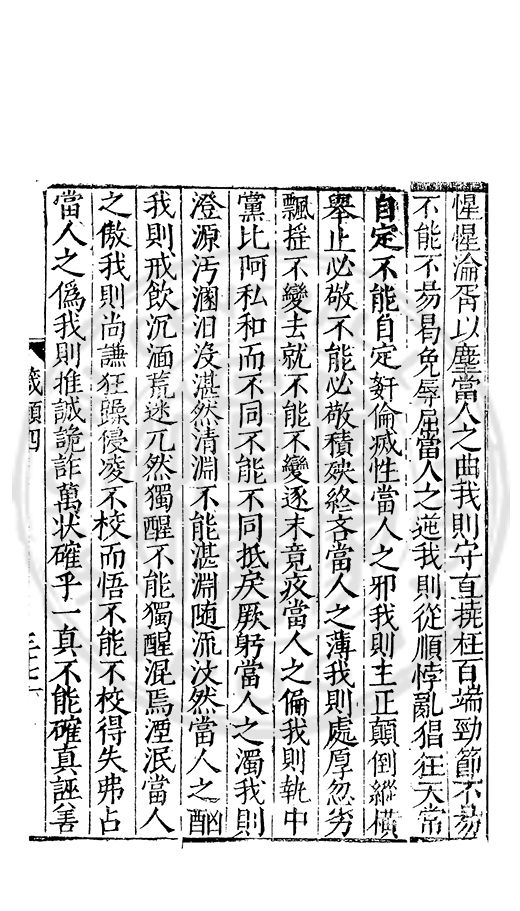 惺惺淪胥以塵當人之曲我則守直撓枉百端勁節不昜
不能不昜曷免辱屈當人之逆我則從順悖亂猖狂天常
自定不能自定姧倫滅性當人之邪我則主正顛倒縱橫
舉止必敬不能必敬積殃終吝當人之薄我則處厚忽劣
飄揺不變去就不能不變逐末竟疚當人之偏我則執中
黨比阿私和而不同不能不同抵戾厥躬當人之濁我則
澄源汚瀾汩没湛然清淵不能湛淵随流汶然當人之酗
我則戒飲沉湎荒迷兀然獨醒不能獨醒混焉湮泯當人
之傲我則尚謙狂躁侵凌不校而悟不能不校得失弗占
當人之僞我則推誠詭詐萬状確乎一真不能確真誣善
箴類四